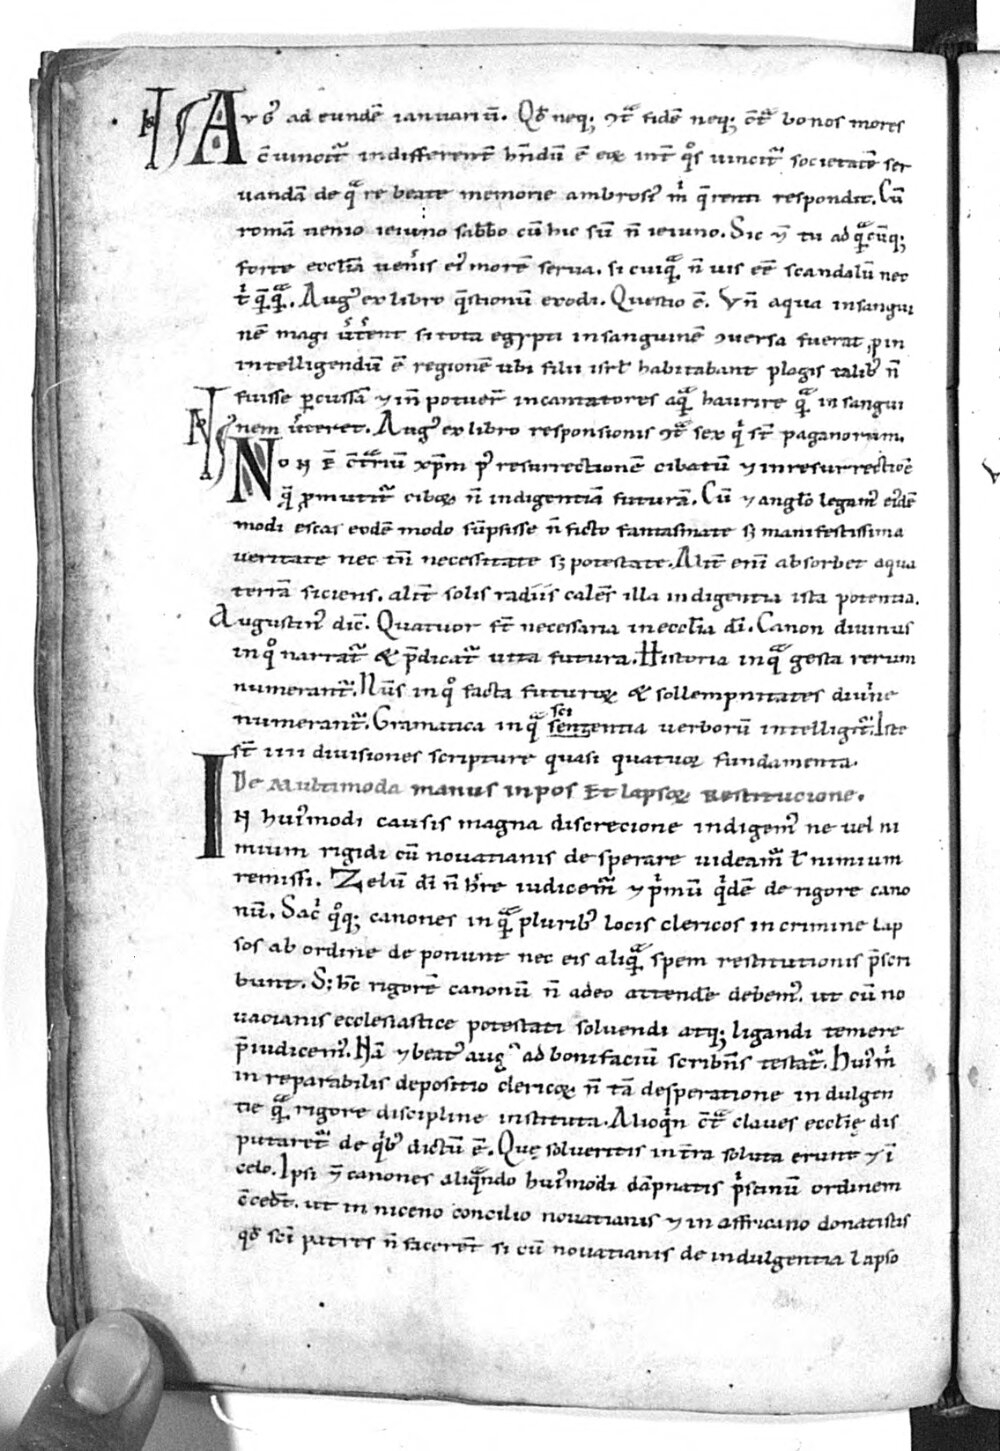 Avḡ ad eundē ianuariū. Qd̄ neq; ɔt̄ fidē neq; ɔt̄ bonos mores
ɔ̄uincit̄ indifferent̄ hn̄dū ē eoꝝ int̄ q̊s uincit̄ societatē ser
uandā de q̄ re beate memorie ambrosi᷒ m̄ q̄renti respondit. Cū
romā uenio ieiuno sabbō cū hic sū n̄ ieiuno. Sic ⁊ tu ad q̄cūq;
forte eccl̄iā uen̄is ei᷒ morē serua. si cuiq̄ n̄ uis eē̄ scandalū nec
t̄ q̄q̄. Aug᷒ ex libro q̄stionū exodi. Questio ē. Vn̄ aqua in sangui
nē magi ūt̄ent si tota egypti in sanguinē ɔuersa fuerat ꝓin
intelligendū ē regionē ubi filii isrl̄ habitabant plagis talib᷒ n̄
fuisse ꝑcussā ⁊ in̄ potuer̄ incantatores aq̄ haurire q̄ in sangui
nem ūteret. Aug᷒ ex libro responsionis ɔt̄ sex q̄ st̄ paganorum.
Non ē ɔt̄riū xp̄m p᷒ resurrectionē cibatū ⁊ in resurrectiōe
q̄ ꝓmittit̄ ciboꝝ n̄ indigentiā futurā. Cū ⁊ angl̄o legam᷒ ei᷒dē
modi escas eodē modo sūpsisse n̄ ficto fantasmate sꝫ manifestissima
ueritate nec tn̄ necessitate sꝫ potestate. Alit̄ eni᷒ absorbet aqua
terrā siciens. alit̄ solis radiis calēs illa indigentia ista potentia.
Augustin᷒ dic̄. Quatuor st̄ necessaria in eccl̄ia dī. Canon diuinus
in q̊ narrat̄ & p̄dicat̄ uita futura. Historia in q̄ gesta rerum
numerant̄. Nūs in q̊ facta futuroꝝ & sollempnitates diuine
numerant̄. Gramatica in q̄ sci sentgentia uerborū intelligit̄. Iste
st̄ iiii diuisiones scripture quasi quatuor fundamenta.
De multimoda manus inpos et lapsoꝝ restitucione.
IN hui᷒modi causis magna discrecione indigem᷒ ne uel ni
mium rigidi cū nouatianis desperare uideam̄ l̄ nimium
remissi. Zelū dī n̄ hr̄e iudicem̄ ⁊ p̄mū q̄dē de rigore cano
nū. Sac̄ q̊q; canones in q̄ plurib᷒ locis clericos in crimine lap
sos ab ordine deponunt nec eis aliq̄ spem restitutionis p̄scri
bunt. S; hc̄ rigorē canonū n̄ adeo attendē debem᷒. ut cū no
uacianis ecclesiastice potestati soluendi atq; ligandi temere
p̄iudicem᷒. Nā ⁊ beat᷒ aug᷒ ad bonifaciū scribn̄s testat̄. Hui᷒m̄
inreparabilis depositio clericoꝝ n̄ tā desperatione indulgen
tie q̄ rigore discipline instituta. Alioq̄n ɔt̄ claues eccl̄ię dis
putaret̄ de q̄b᷒ dictū ē. Quę solueritis in t̄ra soluta erunt ⁊ ī
celo. Ipsi ⁊ canones aliq̄ndo hui᷒modi dāpnatis p̄stinū ordinem
ɔ̄cedt̄. ut in niceno concilio nouatianis ⁊ in affricano donatistis
qd̄ sc̄i patres n̄ facerent̄ si cū nouatianis de indulgentia lapso